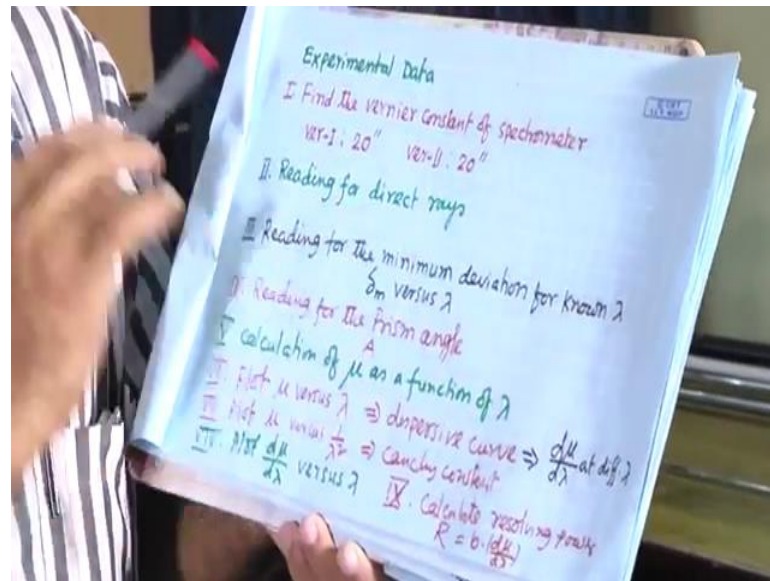 Experimental Data
I Find the vernier constant of spectrometer
ver-I : 20" ver-II : 20"
II. Reading for direct rays
III Reading for the minimum deviation for known λ
δm versus λ
IV. Reading for the Prism angle
A
V calculation of μ as a function of λ
VI. Plot μ versus λ ⇒ dispersive curve ⇒ dμ/dλ at diff. λ
VII Plot μ versus 1/λ² ⇒ cauchy constant
VIII. Plot dμ/dλ versus λ
IX. Calculate resolving power
R = b.(dμ/dλ)